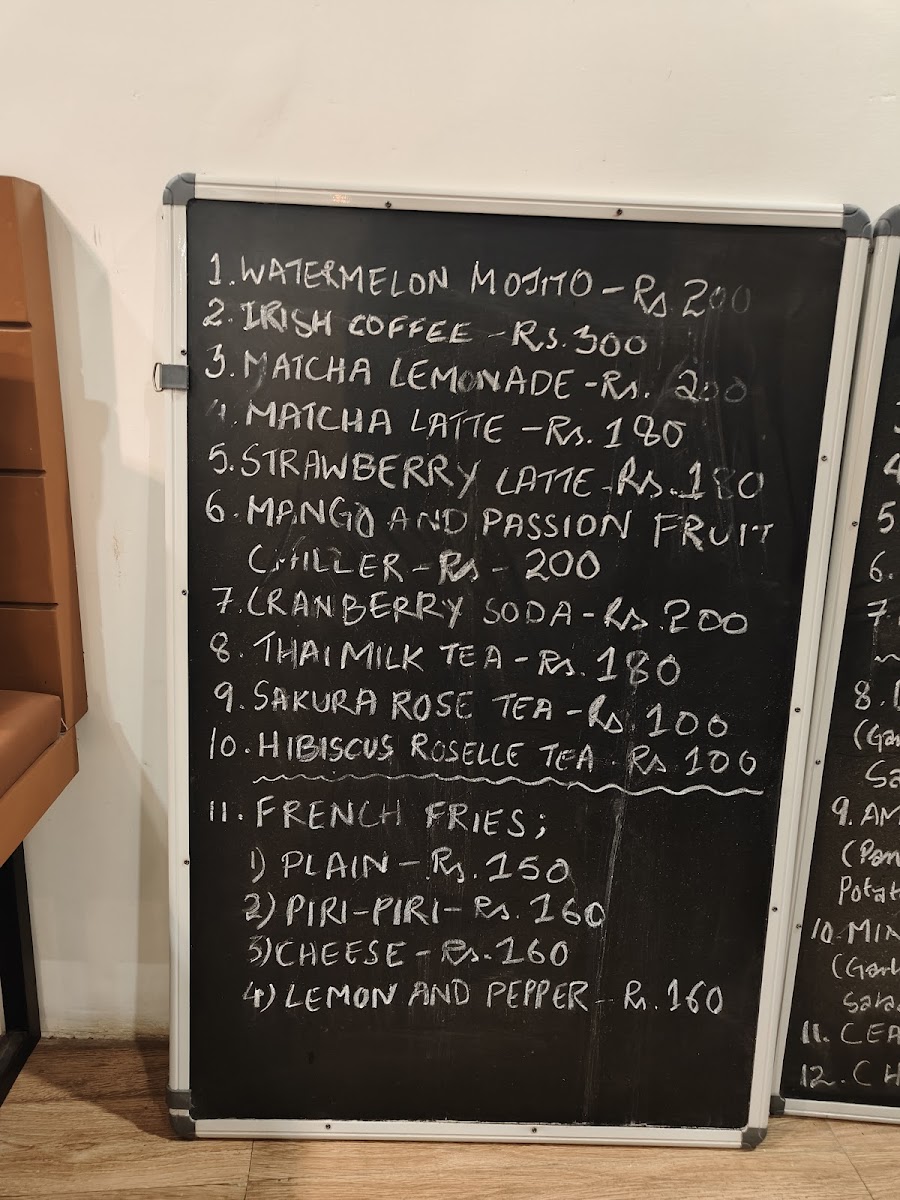 1. WATERMELON MOJITO - Rs. 200
2. IRISH COFFEE - Rs. 300
3. MATCHA LEMONADE - Rs. 200
4. MATCHA LATTE - Rs. 180
5. STRAWBERRY LATTE - Rs. 180
6. MANGO AND PASSION FRUIT
CHILLER - Rs - 200
7. CRANBERRY SODA - Rs. 200
8. THAI MILK TEA - Rs. 180
9. SAKURA ROSE TEA - Rs. 100
10. HIBISCUS ROSELLE TEA - Rs 100
11. FRENCH FRIES;
1) PLAIN - Rs. 150
2) PIRI-PIRI - Rs. 160
3) CHEESE - Rs. 160
4) LEMON AND PEPPER - Rs. 160
4
5
6.
7.
8.
9.
10.
11.
12.